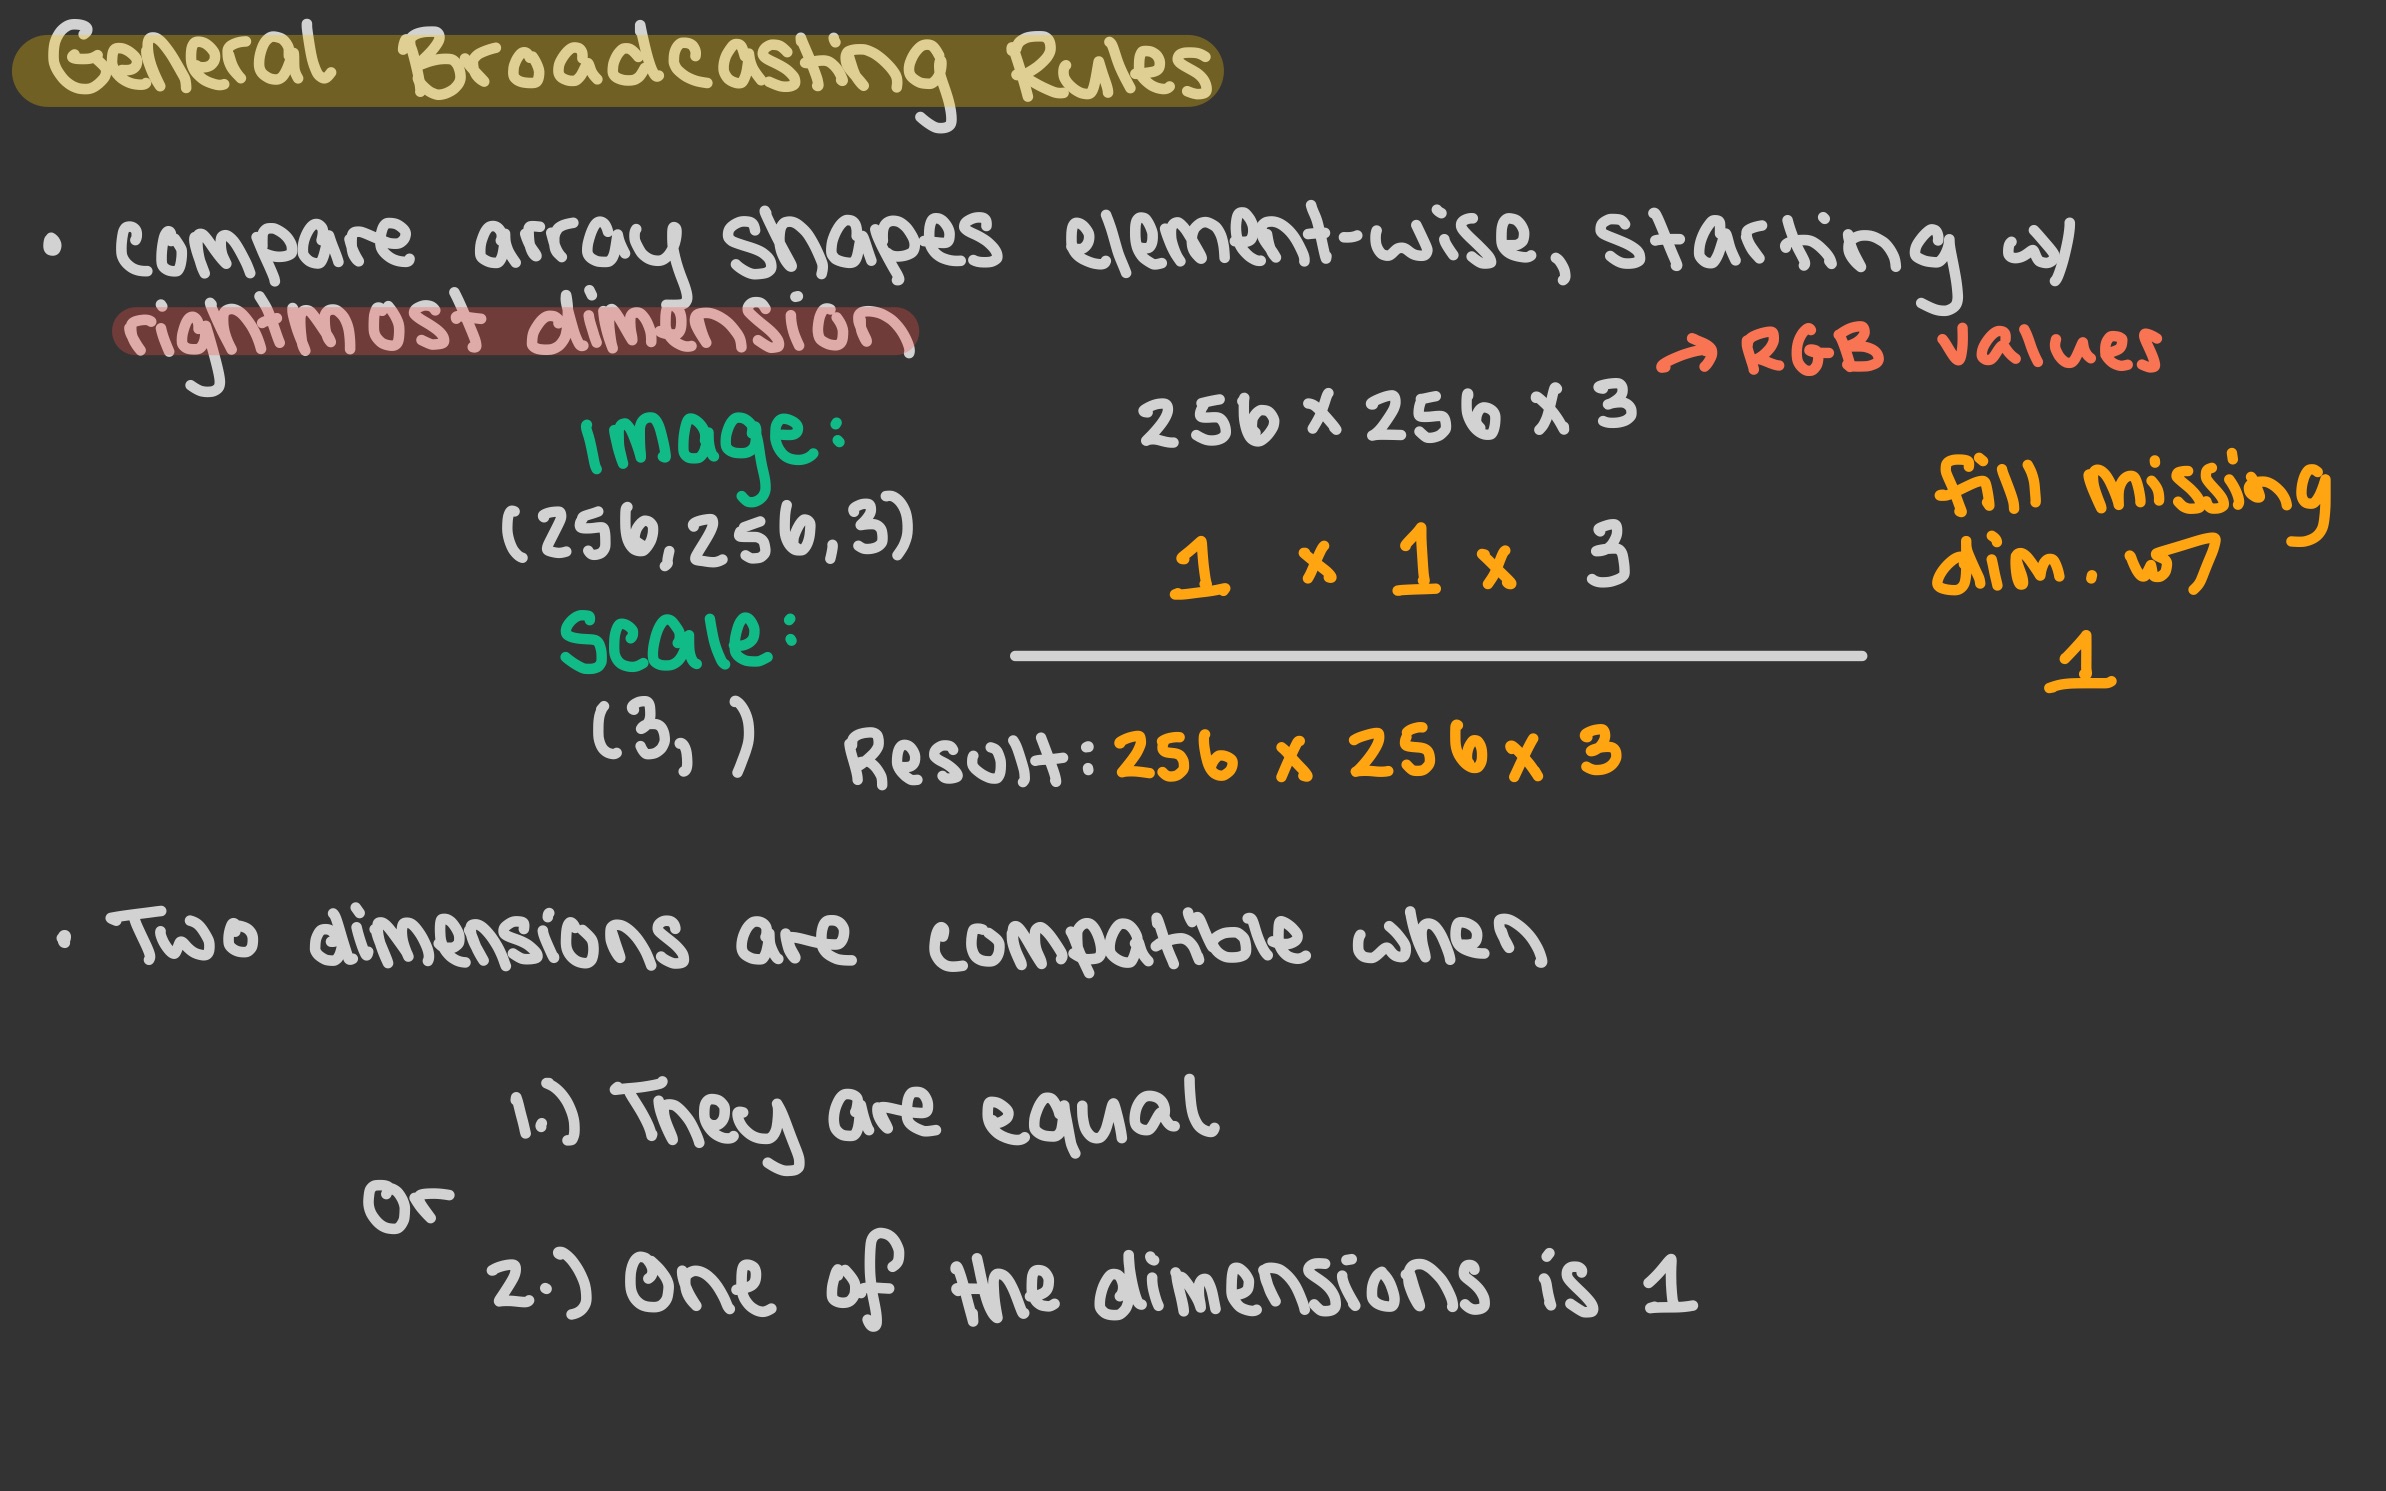 General Broadcasting Rules
• compare array shapes element-wise, starting w/
rightmost dimension
→ RGB values
Image:
256 x 256 x 3
(256,256,3)
fill missing
dim. w/
1
1 x 1 x 3
Scale:
(3, )
Result: 256 x 256 x 3
• Two dimensions are compatible when
1.) They are equal
Or
2.) One of the dimensions is 1